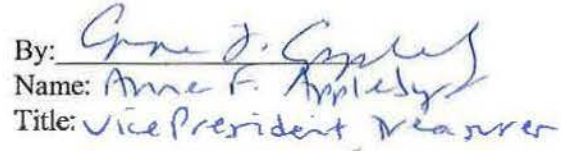 By: Anne F. Appleby
Name: Anne F. Appleby
Title: Vice President Treasurer